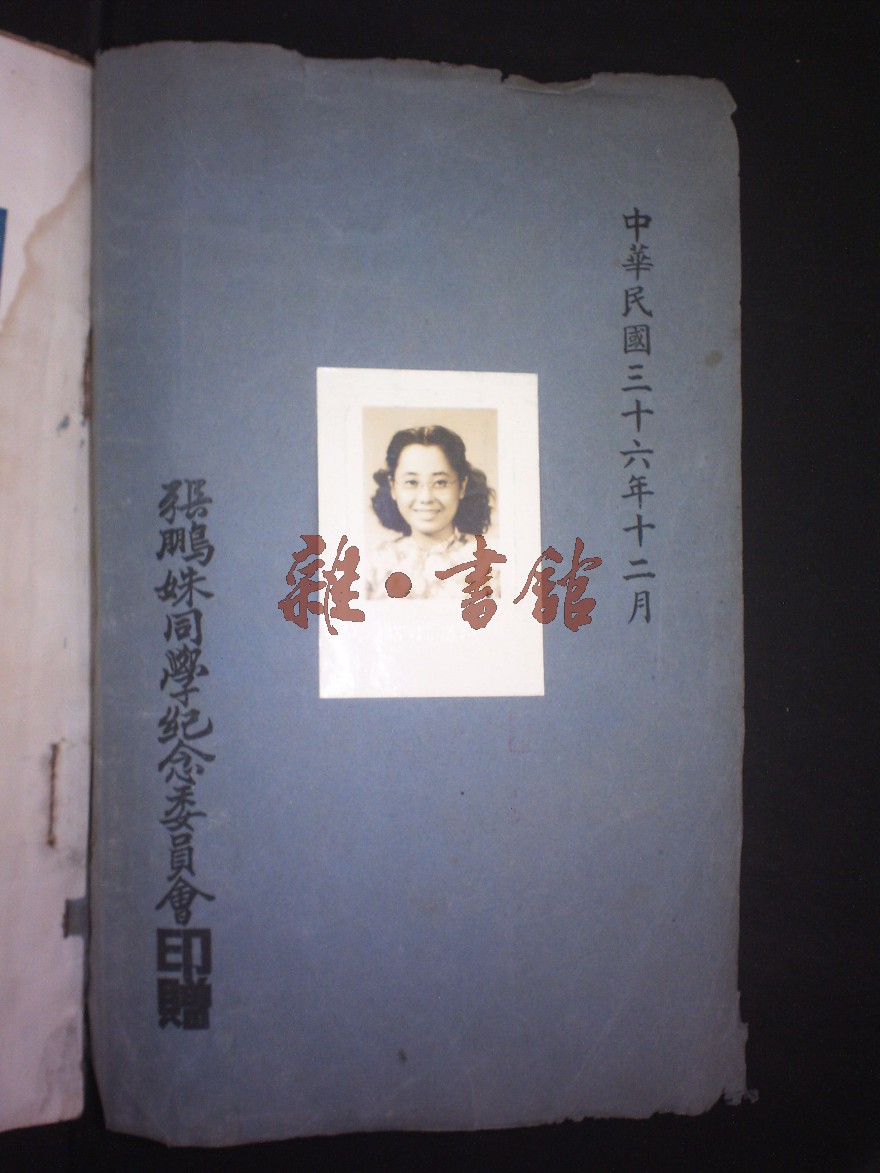 中華民國三十六年十二月
雜·書館
張鵬姝同學紀念委員會印贈